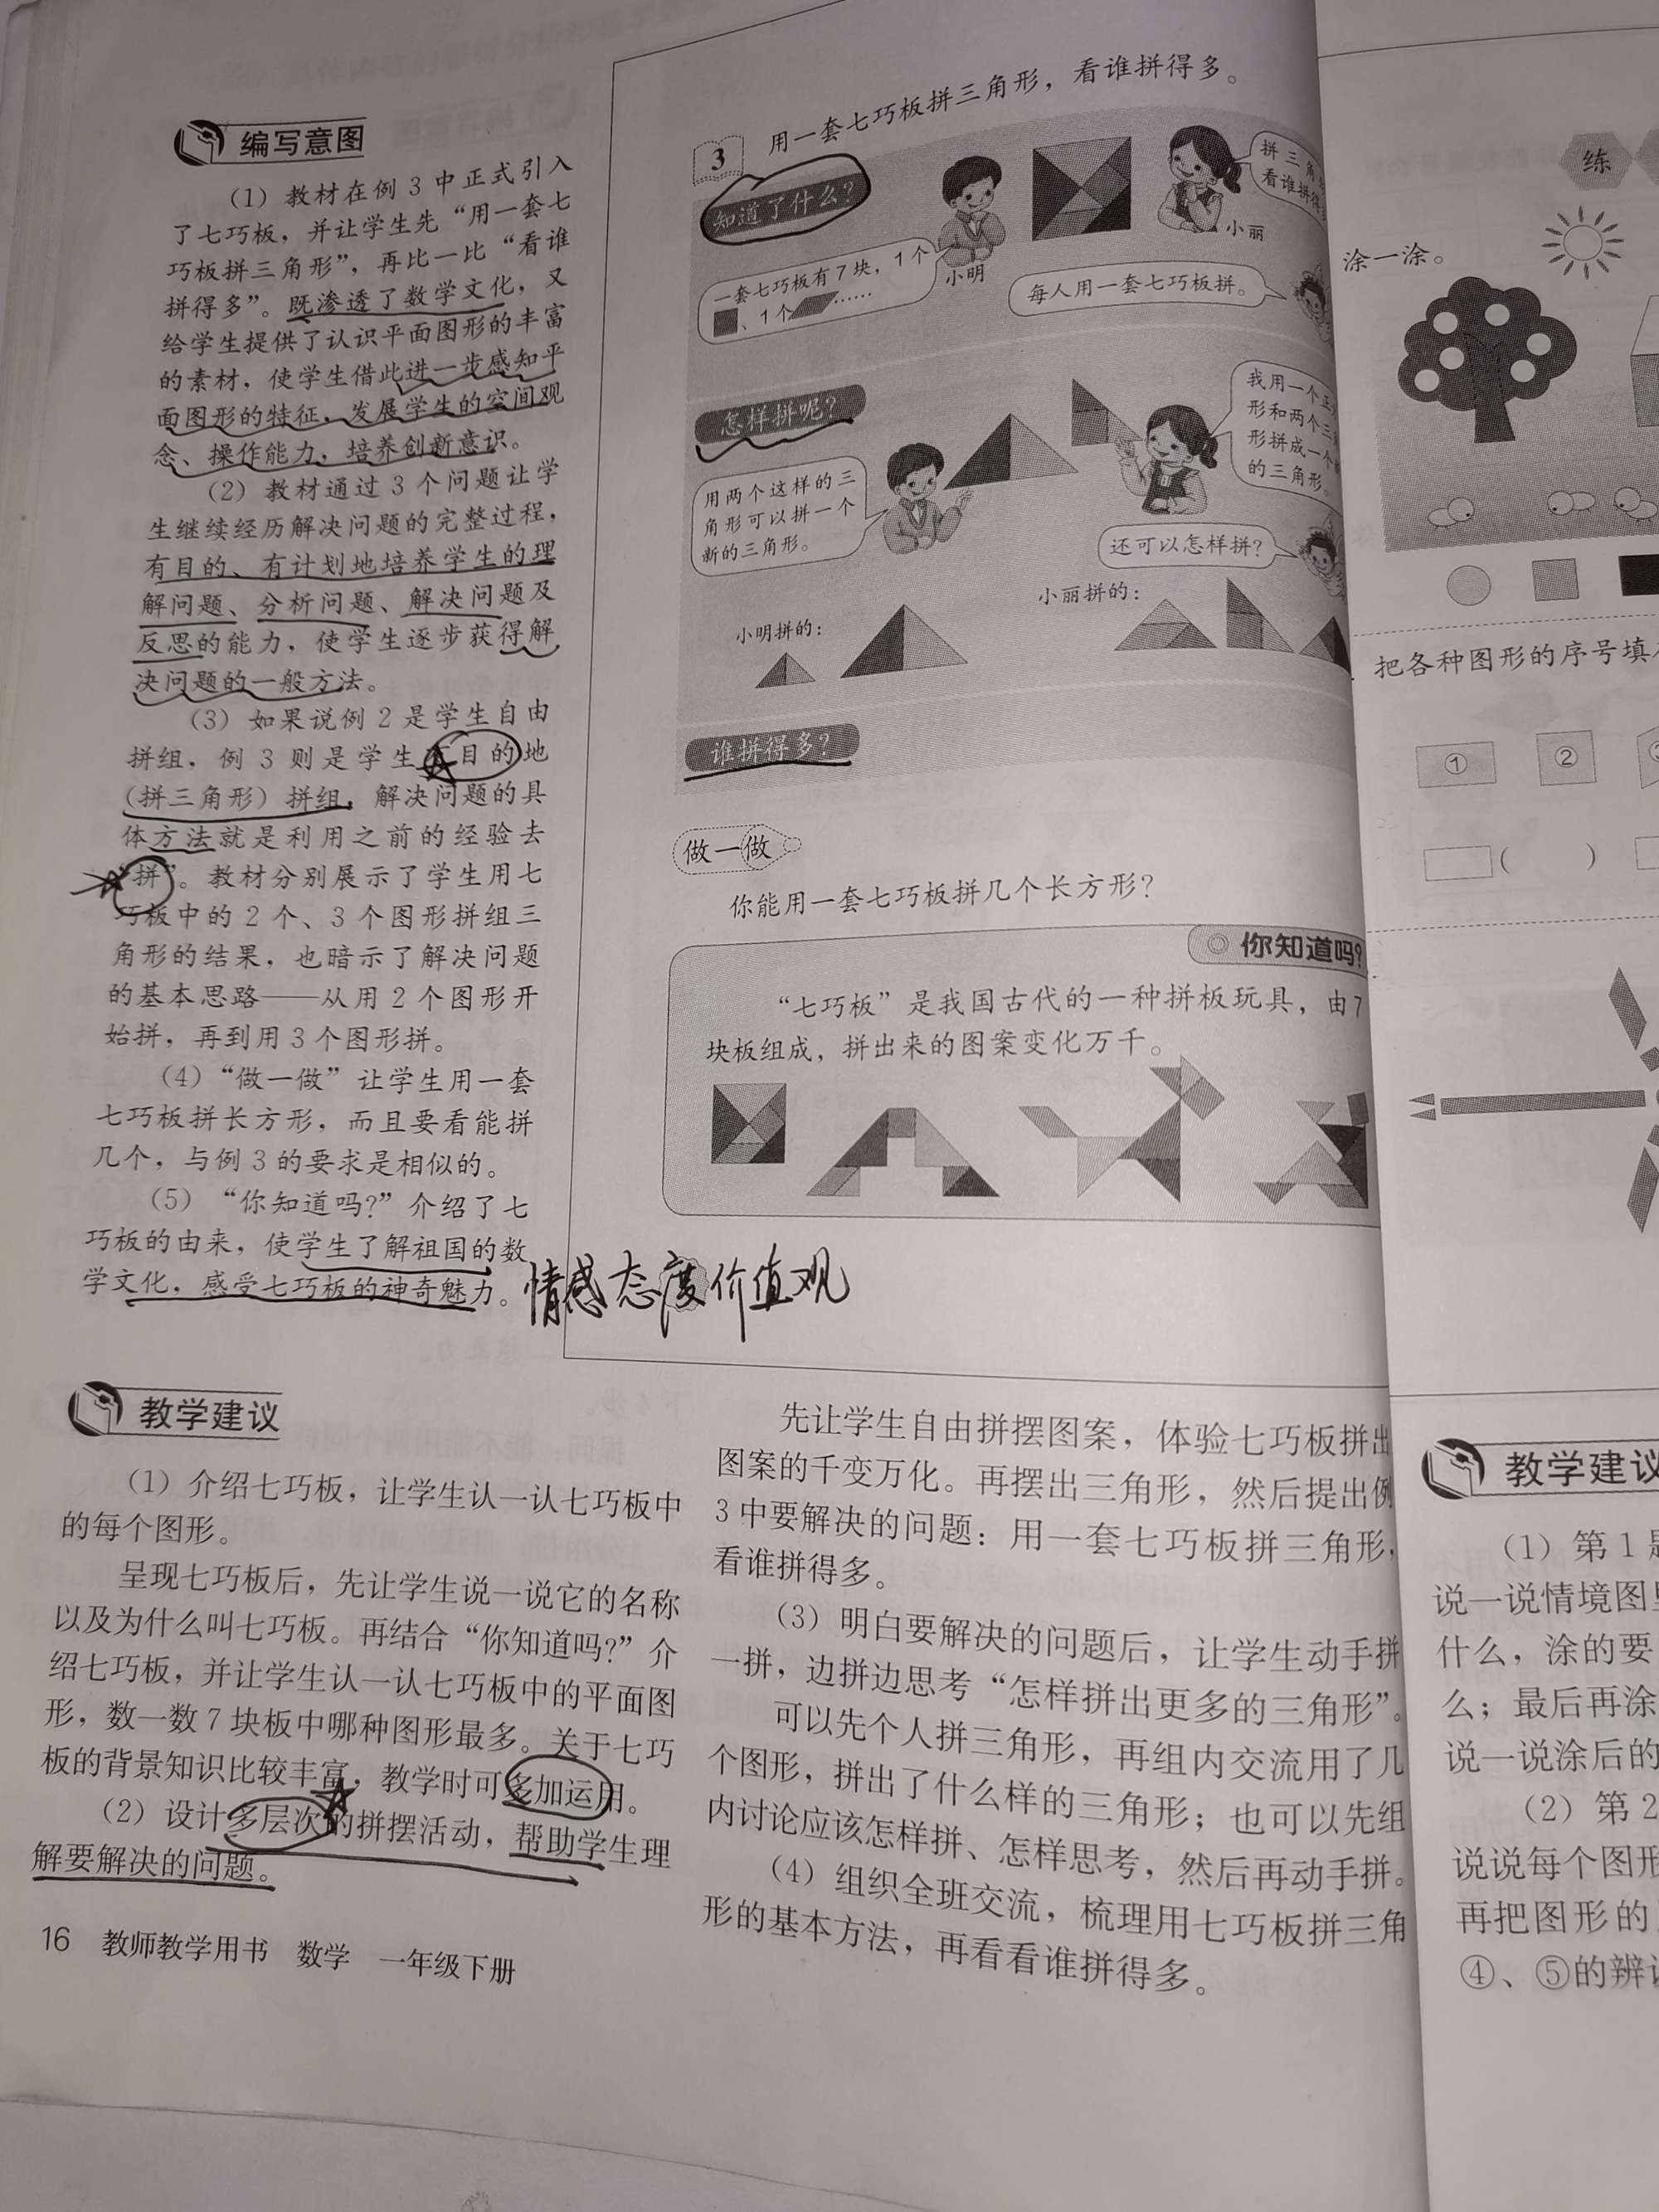 编写意图
（1）教材在例 3 中正式引入
了七巧板，并让学生先“用一套七
巧板拼三角形”，再比一比“看谁
拼得多”。既渗透了数学文化，又
给学生提供了认识平面图形的丰富
的素材，使学生借此进一步感知平
面图形的特征，发展学生的空间观
念、操作能力，培养创新意识。
（2）教材通过 3 个问题让学
生继续经历解决问题的完整过程，
有目的、有计划地培养学生的理
解问题、分析问题、解决问题及
反思的能力，使学生逐步获得解
决问题的一般方法。
（3）如果说例 2 是学生自由
拼组，例 3 则是学生目的地
（拼三角形）拼组，解决问题的具
体方法就是利用之前的经验去
“拼”。教材分别展示了学生用七
巧板中的 2 个、3 个图形拼组三
角形的结果，也暗示了解决问题
的基本思路——从用 2 个图形开
始拼，再到用 3 个图形拼。
（4）“做一做”让学生用一套
七巧板拼长方形，而且要看能拼
几个，与例 3 的要求是相似的。
（5）“你知道吗?”介绍了七
巧板的由来，使学生了解祖国的数
学文化，感受七巧板的神奇魅力。
情感态度价值观
3 用一套七巧板拼三角形，看谁拼得多。
知道了什么?
拼三角
看谁拼得
小丽
小明
一套七巧板有7块，1个
、1个……
每人用一套七巧板拼。
怎样拼呢?
我用一个正
形和两个三
形拼成一个
的三角形。
用两个这样的三
角形可以拼一个
新的三角形。
还可以怎样拼?
小明拼的：
小丽拼的：
谁拼得多?
做一做
你能用一套七巧板拼几个长方形?
你知道吗?
“七巧板”是我国古代的一种拼板玩具，由7
块板组成，拼出来的图案变化万千。
教学建议
（1）介绍七巧板，让学生认一认七巧板中
的每个图形。
呈现七巧板后，先让学生说一说它的名称
以及为什么叫七巧板。再结合“你知道吗?”介
绍七巧板，并让学生认一认七巧板中的平面图
形，数一数 7 块板中哪种图形最多。关于七巧
板的背景知识比较丰富，教学时可多加运用。
（2）设计多层次的拼摆活动，帮助学生理
解要解决的问题。
先让学生自由拼摆图案，体验七巧板拼出
图案的千变万化。再摆出三角形，然后提出例
3 中要解决的问题：用一套七巧板拼三角形，
看谁拼得多。
（3）明白要解决的问题后，让学生动手拼
一拼，边拼边思考“怎样拼出更多的三角形”。
可以先个人拼三角形，再组内交流用了几
个图形，拼出了什么样的三角形；也可以先组
内讨论应该怎样拼、怎样思考，然后再动手拼。
（4）组织全班交流，梳理用七巧板拼三角
形的基本方法，再看看谁拼得多。
16 教师教学用书 数学 一年级下册
练
涂一涂。
把各种图形的序号填
①
②
（ ）
教学建议
（1）第 1
说一说情境图
什么，涂的要
么；最后再涂
说一说涂后的
（2）第 2
说说每个图形
再把图形的
④、⑤的辨